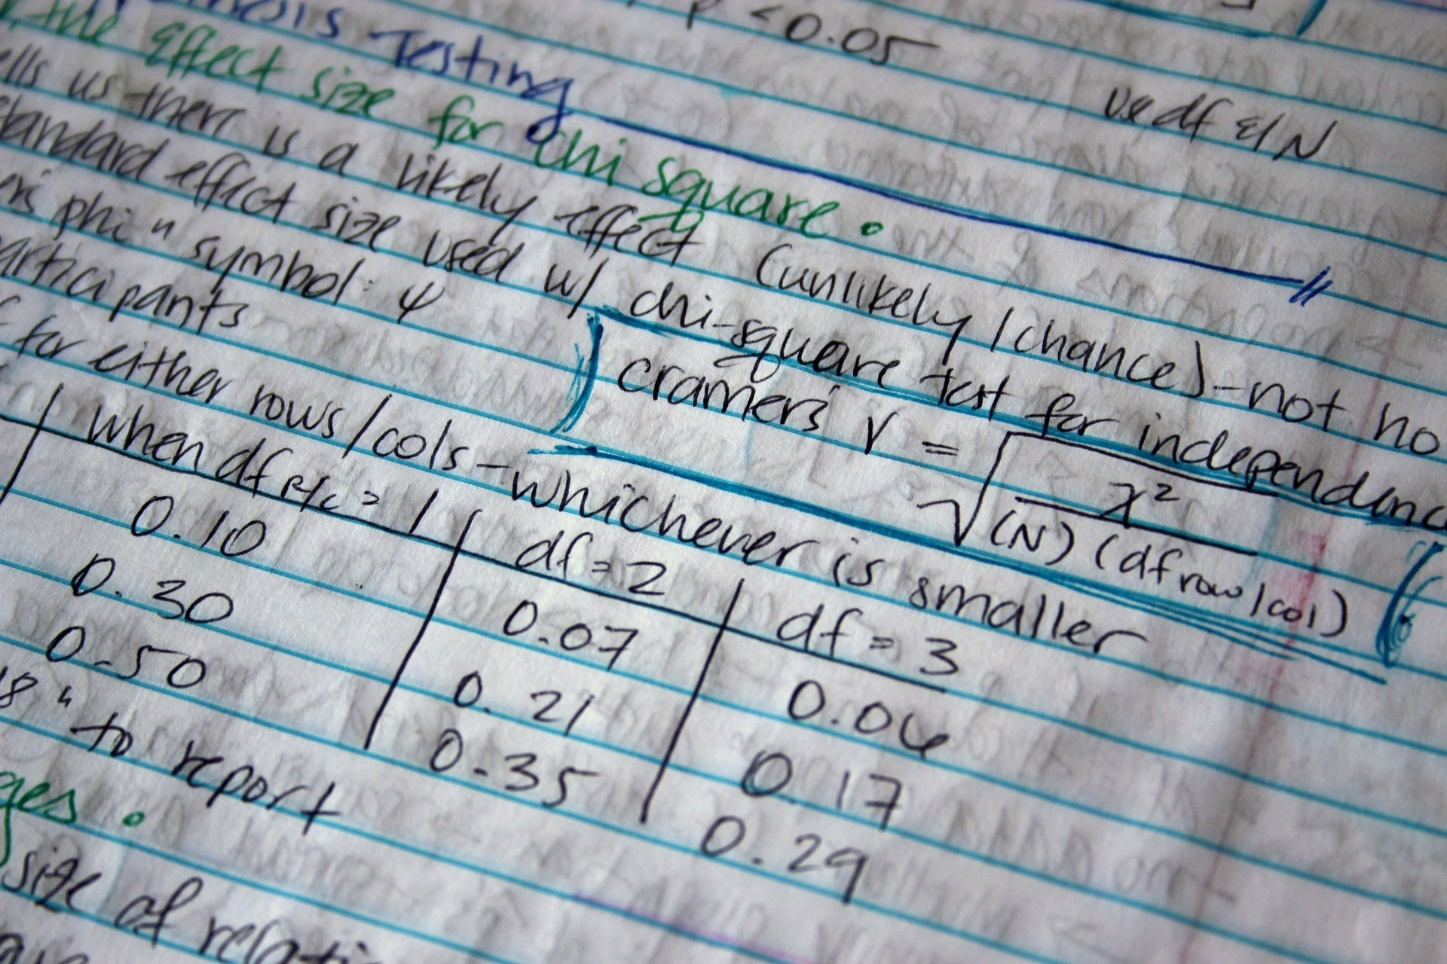 P < 0.05
use df & N
Testing
the Effect size for Chi Square.
us there is a likely effect (unlikely/chance) - not
standard effect size used w/ chi-square test for independence
phi" symbol:
cramer's V = √ χ² / (N) (df row/col)
for either rows/cols - whichever is smaller
when df R/C = 1 df = 2 df = 3
0.10 0.07 0.06
0.30 0.21 0.17
0.50 0.35 0.29
" to report
size of